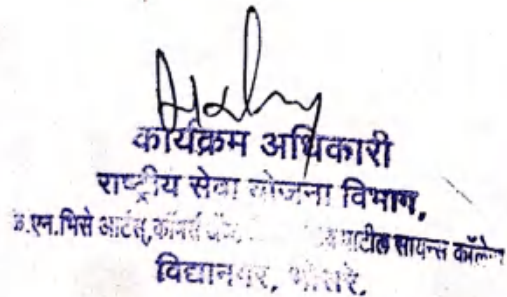 कार्यक्रम अधिकारी
राष्ट्रीय सेवा योजना विभाग,
के.एन.भिसे आर्टस्,कॉमर्स पाटील सायन्स कॉलेज
विद्यानगर, भोसरे.